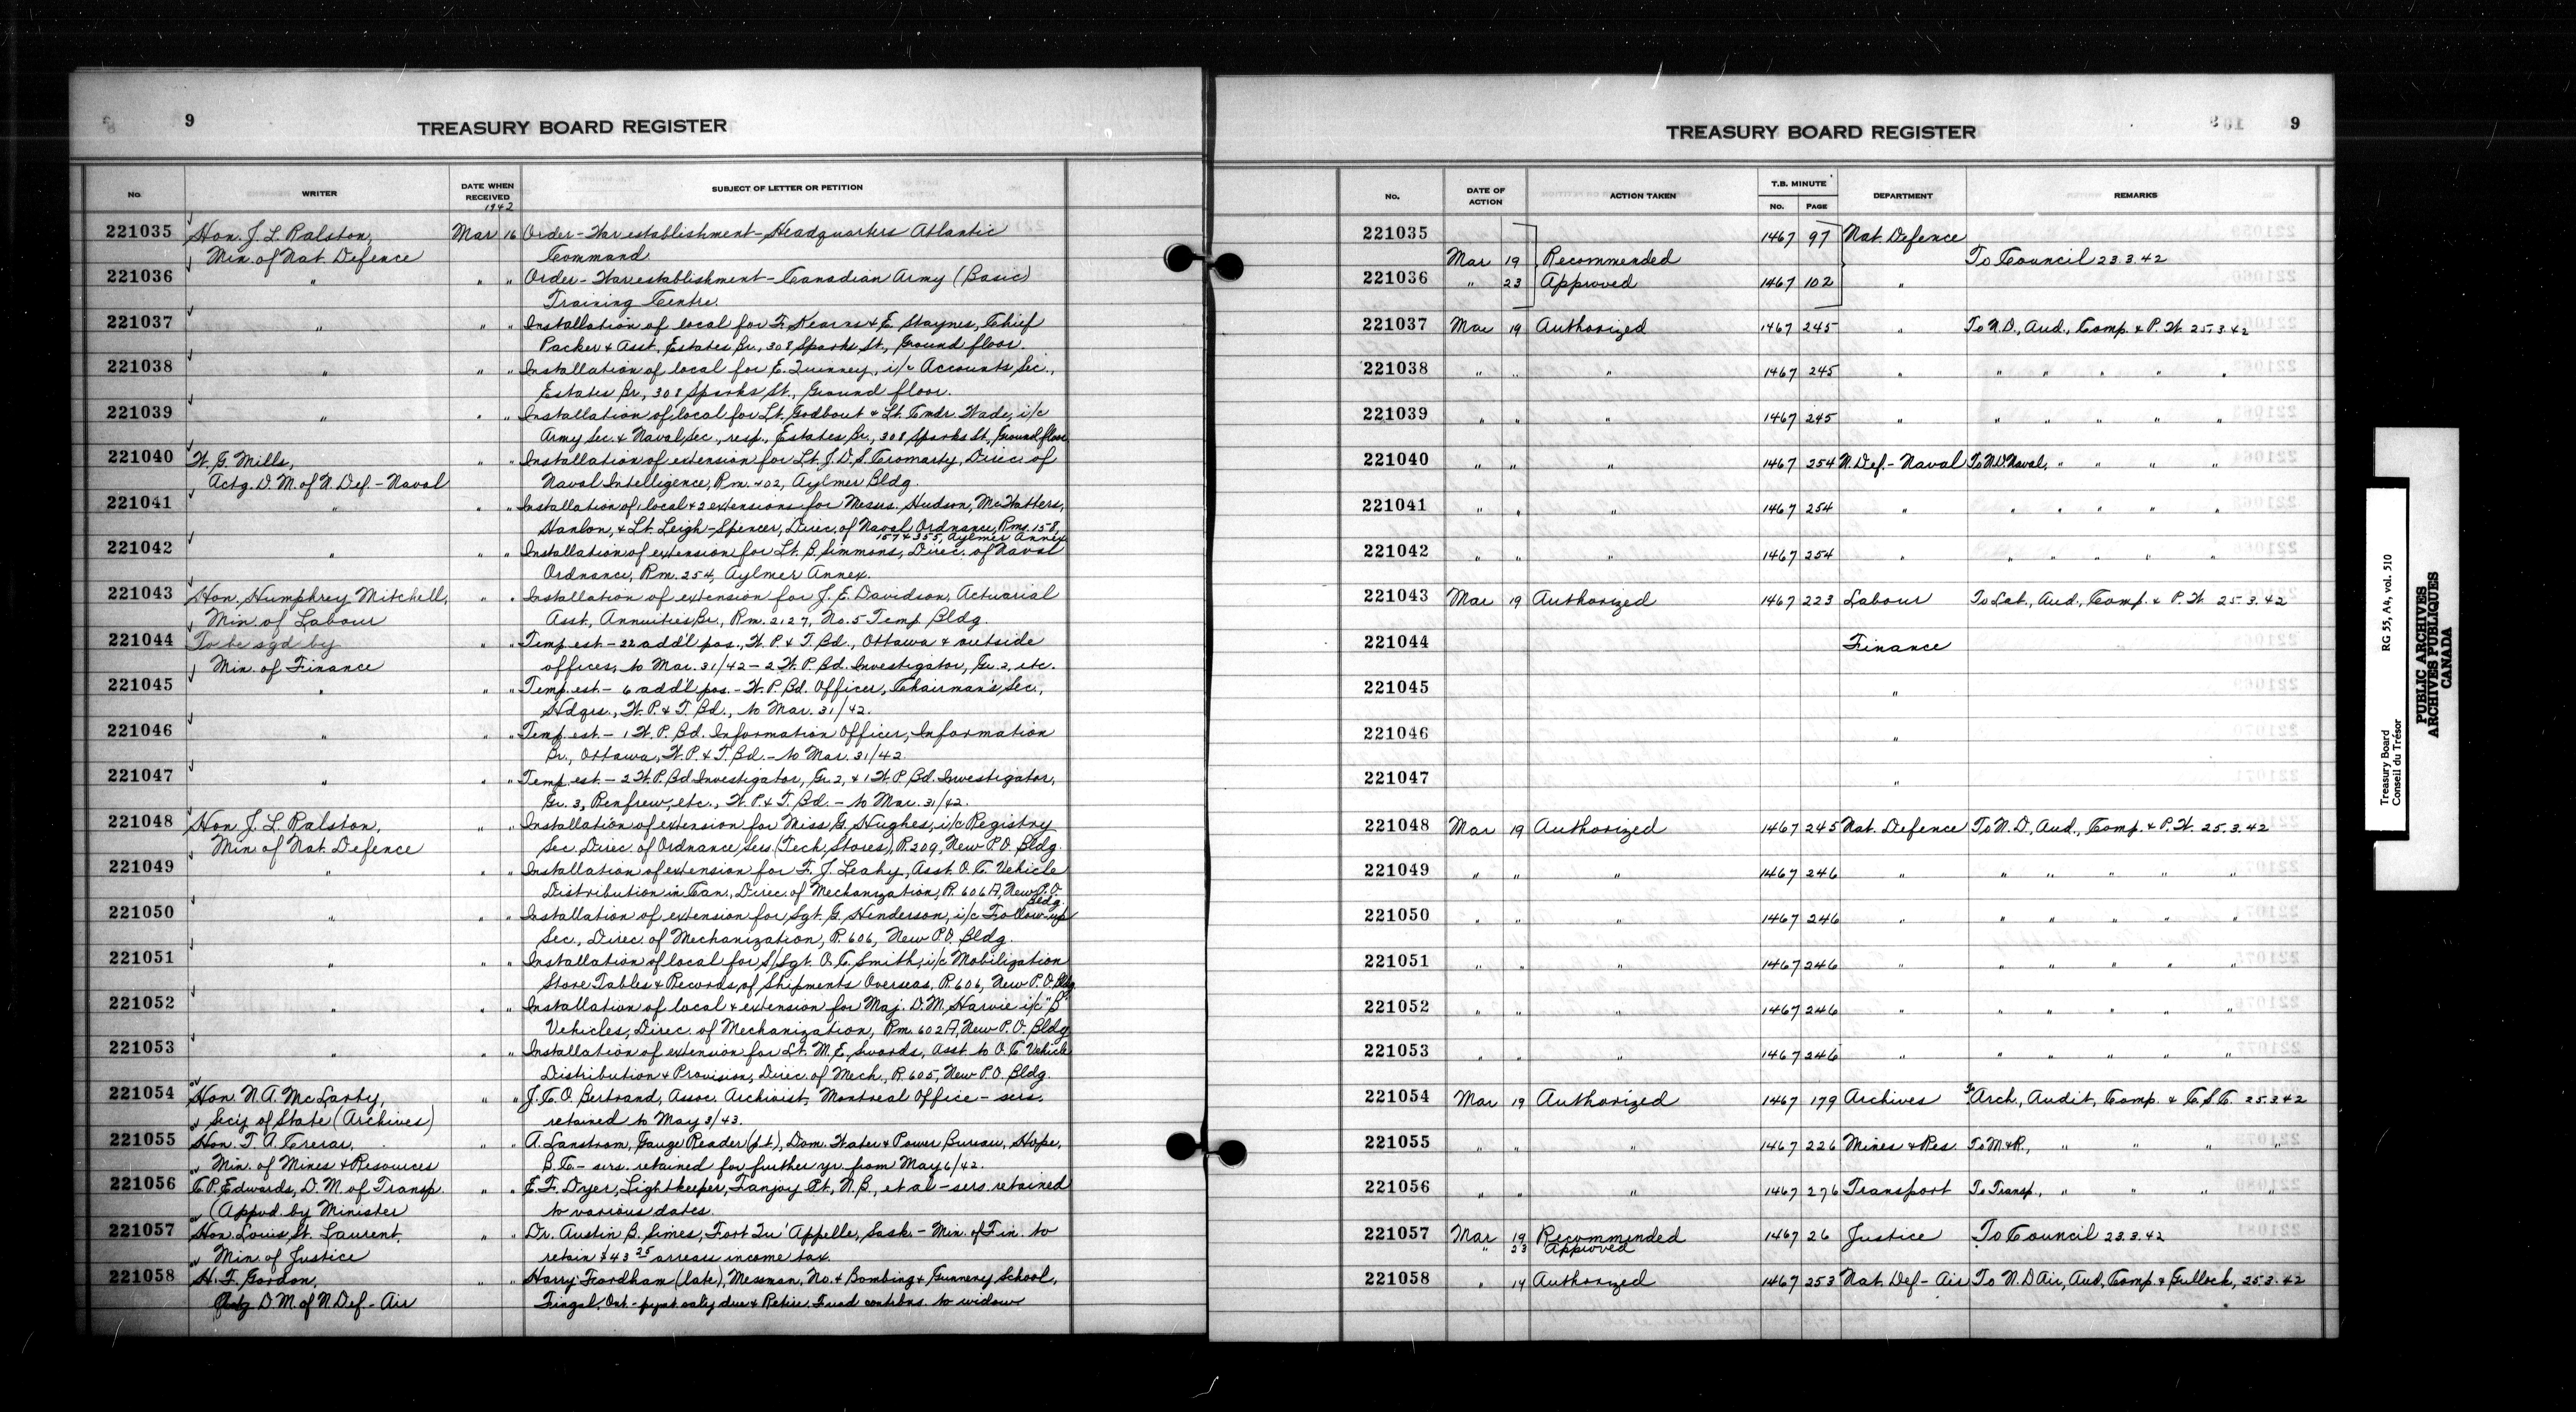 9
TREASURY BOARD REGISTER
No. WRITER DATE WHEN RECEIVED SUBJECT OF LETTER OR PETITION
1942
221035 Hon. J. L. Ralston, Mar 16 Order - War establishment - Headquarters Atlantic
Min. of Nat. Defence Command
221036 " " " Order - War establishment - Canadian Army (Basic)
Training Centre.
221037 " " " Installation of local for F. Kearns & E. Staynes, Chief
Packer & Asst, Estates Br., 308 Sparks St., Ground floor.
221038 " " " Installation of local for E. Quinney, i/c Accounts Sec.,
Estates Br., 308 Sparks St., Ground floor.
221039 " " " Installation of local for Lt. Godbout & Lt. Cmdr. Wade, i/c
Army Sec. & Naval Sec., resp., Estates Br., 308 Sparks St., Ground floor
221040 W. G. Mills, " " Installation of extension for Lt. J. D. S. Cromarty, Direc. of
Actg. D. M. of N. Def. - Naval Naval Intelligence, Rm. 402, Aylmer Bldg.
221041 " " " Installation of 1 local & 2 extensions for Messrs. Hudson, McWatters,
Hanlon, & Lt. Leigh-Spencer, Direc. of Naval Ordnance, Rms. 158,
157 & 355, Aylmer Annex
221042 " " " Installation of extension for Lt. B. Simmons, Direc. of Naval
Ordnance, Rm. 254, Aylmer Annex.
221043 Hon. Humphrey Mitchell, " " Installation of extension for J. E. Davidson, Actuarial
Min. of Labour Asst, Annuities Br., Rm. 2127, No. 5 Temp Bldg.
221044 To be sgd by " " Temp est - 22 add'l pos., W. P. & T. Bd., Ottawa & outside
Min. of Finance offices, to Mar. 31/42 - 2 W. P. Bd. Investigator, Gr. 2, etc.
221045 " " " Temp. est. - 6 add'l pos. - W. P. Bd. Officer, Chairman's Sec.,
Hdqrs., W. P. & T. Bd., to Mar. 31/42.
221046 " " " Temp. est - 1 W. P. Bd. Information Officer, Information
Br., Ottawa, W. P. & T. Bd. - to Mar. 31/42.
221047 " " " Temp. est - 2 W. P. Bd Investigator, Gr. 2, & 1 W. P. Bd. Investigator,
Gr. 3, Renfrew, etc., W. P. & T. Bd. - to Mar. 31/42.
221048 Hon J. L. Ralston, " " Installation of extension for Miss G. Hughes, i/c Registry
Min. of Nat. Defence Sec. Direc. of Ordnance Sers. (Tech. Stores), R. 209, New P.O. Bldg.
221049 " " " Installation of extension for F. J. Leahy, Asst. O. C. Vehicle
Distribution in Can., Direc. of Mechanization, R. 606A, New P.O.
Bldg.
221050 " " " Installation of extension for Sgt. G. Henderson, i/c Follow-up
Sec., Direc. of Mechanization, R. 606, New P.O. Bldg.
221051 " " " Installation of local for S/Sgt. O. C. Smith, i/c Mobilization
Store Tables & Records of Shipments Overseas, R. 606, New P.O. Bldg
221052 " " " Installation of local & extension for Maj. D. M. Harvie i/c "B"
Vehicles, Direc. of Mechanization, Rm. 602A, New P. O. Bldg
221053 " " " Installation of extension for Lt. M. E. Swords, Asst. to O. C. Vehicle
Distribution & Provision, Direc. of Mech., R. 605, New P.O. Bldg.
221054 Hon. N. A. McLarty, " " J. C. O. Bertrand, Assoc. Archivist, Montreal Office - sers.
Sec'y of State (Archives) retained to May 3/43.
221055 Hon. T. A. Crerar, " " A. Lanstrom, Gauge Reader (p.t.), Dom. Water & Power Bureau, Hope,
Min. of Mines & Resources B. C. - sers. retained for further yr. from May 6/42.
221056 C. P. Edwards, D. M. of Transp. " " E. F. Dyer, Lightkeeper, Fanjoy Pt., N.B., et al - sers. retained
(Appvd. by Minister to various dates.
221057 Hon. Louis St. Laurent, " " Dr. Austin B. Simes, Fort Qu'Appelle, Sask. - Min. of Fin. to
Min. of Justice retain $43 25 arrears income tax.
221058 H. F. Gordon, " " Harry Fordham (late), Messman, No. 4 Bombing & Gunnery School,
Actg D. M. of N. Def - Air Fingal, Ont - pymt salry due & Retire. Fund contribns. to widow
9
TREASURY BOARD REGISTER
No. DATE OF ACTION ACTION TAKEN T.B. MINUTE No. PAGE DEPARTMENT REMARKS
221035 1467 97 Nat. Defence
Mar 19 Recommended To Council 23.3.42
221036 " 23 Approved 1467 102 "
221037 Mar 19 Authorized 1467 245 " To N.D., Aud., Comp. & P. W. 25.3.42
221038 " " " 1467 245 " " " " " "
221039 " " " 1467 245 " " " " " "
221040 " " " 1467 254 N. Def. - Naval To N.D. Naval, " " " "
221041 " " " 1467 254 " " " " " "
221042 " " " 1467 254 " " " " " "
221043 Mar 19 Authorized 1467 223 Labour To Lab., Aud., Comp. & P. W. 25.3.42
221044 Finance
221045 "
221046 "
221047 "
221048 Mar 19 Authorized 1467 245 Nat. Defence To N. D., Aud., Comp. & P. W. 25.3.42
221049 " " " 1467 246 " " " " " "
221050 " " " 1467 246 " " " " " "
221051 " " " 1467 246 " " " " " "
221052 " " " 1467 246 " " " " " "
221053 " " " 1467 246 " " " " " "
221054 Mar 19 Authorized 1467 179 Archives To Arch., Audit, Comp. & C. S. C. 25.3.42
221055 " " " 1467 226 Mines & Res. To M. & R., " " "
221056 " " " 1467 276 Transport To Transp., " " "
221057 Mar 19 Recommended 1467 26 Justice To Council 23.3.42
" 23 Approved
221058 " 19 Authorized 1467 253 Nat. Def - Air To N. D Air, Aud, Comp & Gullock, 25.3.42
Treasury Board RG 55, A4, vol. 510
Conseil du Trésor
PUBLIC ARCHIVES
ARCHIVES PUBLIQUES
CANADA